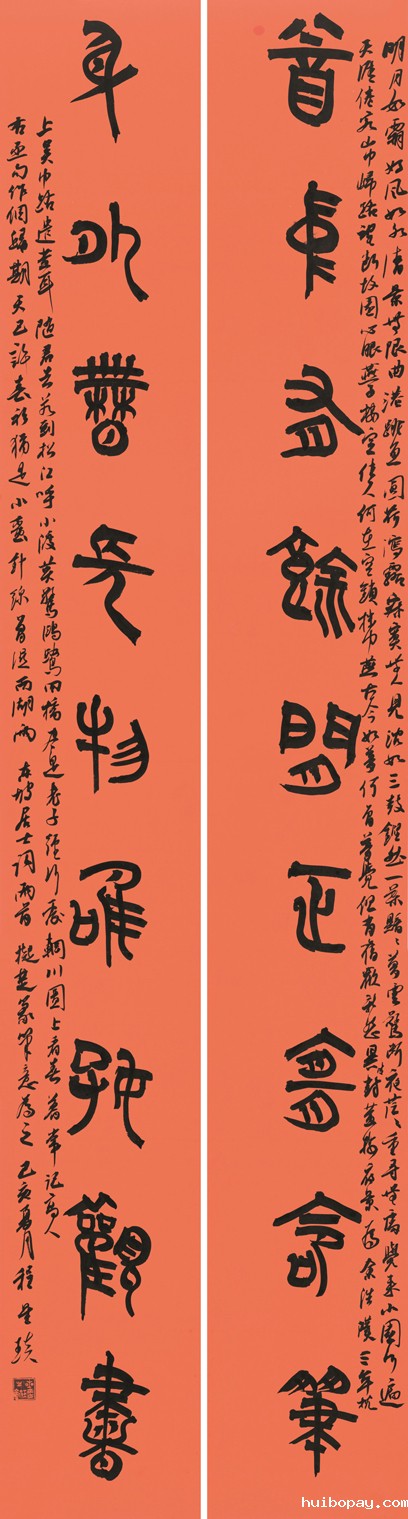 有餘
正
命筆
明月如霜好風如水清景無限曲港跳魚圓荷瀉露寂寞無人見紞如三鼓鏗然一葉黯黯夢雲驚斷夜茫茫重尋無處覺來小園行遍
天涯倦客山中歸路望斷故園心眼燕子樓空佳人何在空鎖樓中燕古今如夢何曾夢覺但有舊歡新怨異時對黃樓夜景為余浩嘆三年枕
身外無長物唯好觀書
上吳中路遣黃耳隨君去若到松江呼小渡莫驚鷗鷺四橋盡是老子經行處輞川圖上看春暮常記高人
右丞句作個歸期天已許春衫猶是小蠻針線曾濕西湖雨東坡居士詞兩首擬楚篆筆意為之己亥夏月程
huibopay.com